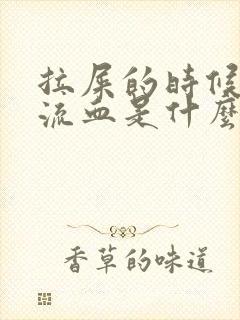 拉屎的時候
流血是什麼
香草的味道